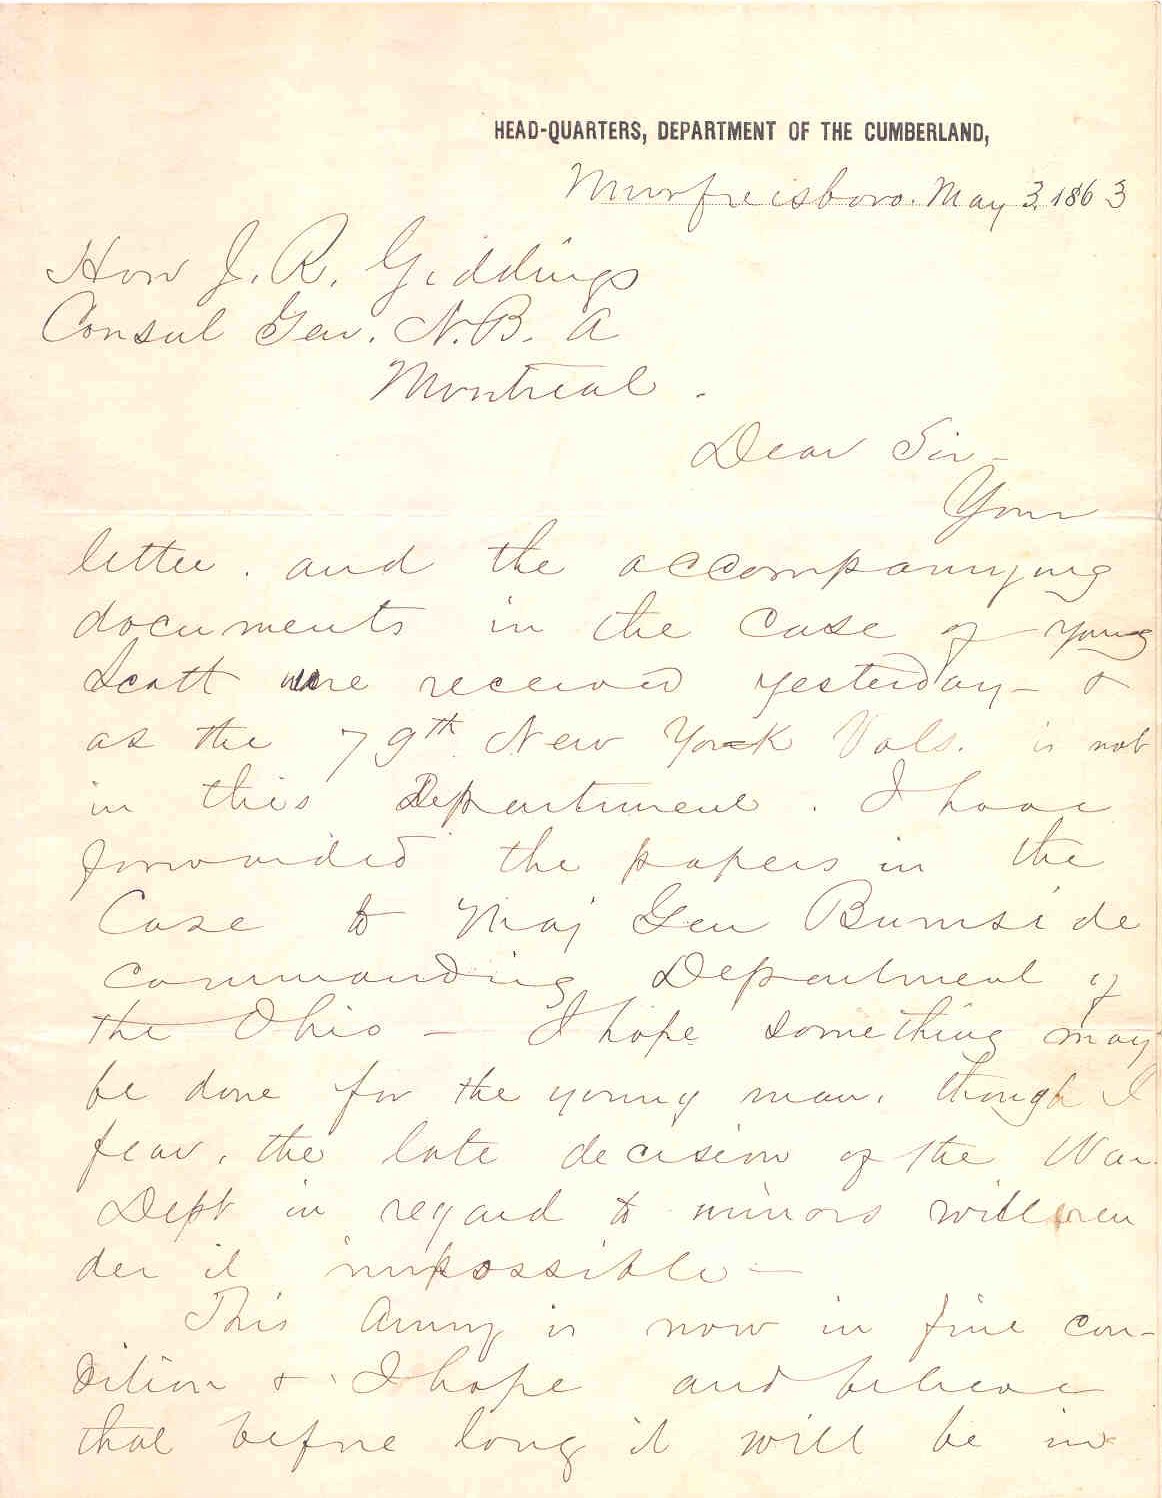 HEAD-QUARTERS, DEPARTMENT OF THE CUMBERLAND,
Murfreisboro. May 3. 1863
Hon J. R. Giddings
Consul Gen. N. B. A
Montreal.
Dear Sir-
Your
letter. and the accompanying
documents in the case of young
Scott were received yesterday- &
as the 79th New York Vols. is not
in this Department. I have
forwarded the papers in the
Case to Maj Gen Burnside
commanding Department of
the Ohio - I hope something may
be done for the young man, though I
fear, the late decision of the War
Dept in regard to minors will ren
der it impossible -
This Army is now in fine con-
dition & I hope and believe
that before long it will be in